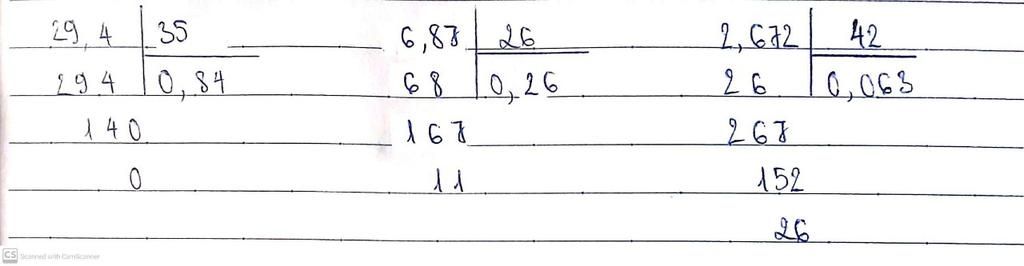 29,4 35 6,87 26 2,672 42
294 0,84 68 0,26 26 0,063
140 167 267
0 11 152
26
CS Scanned with CamScanner